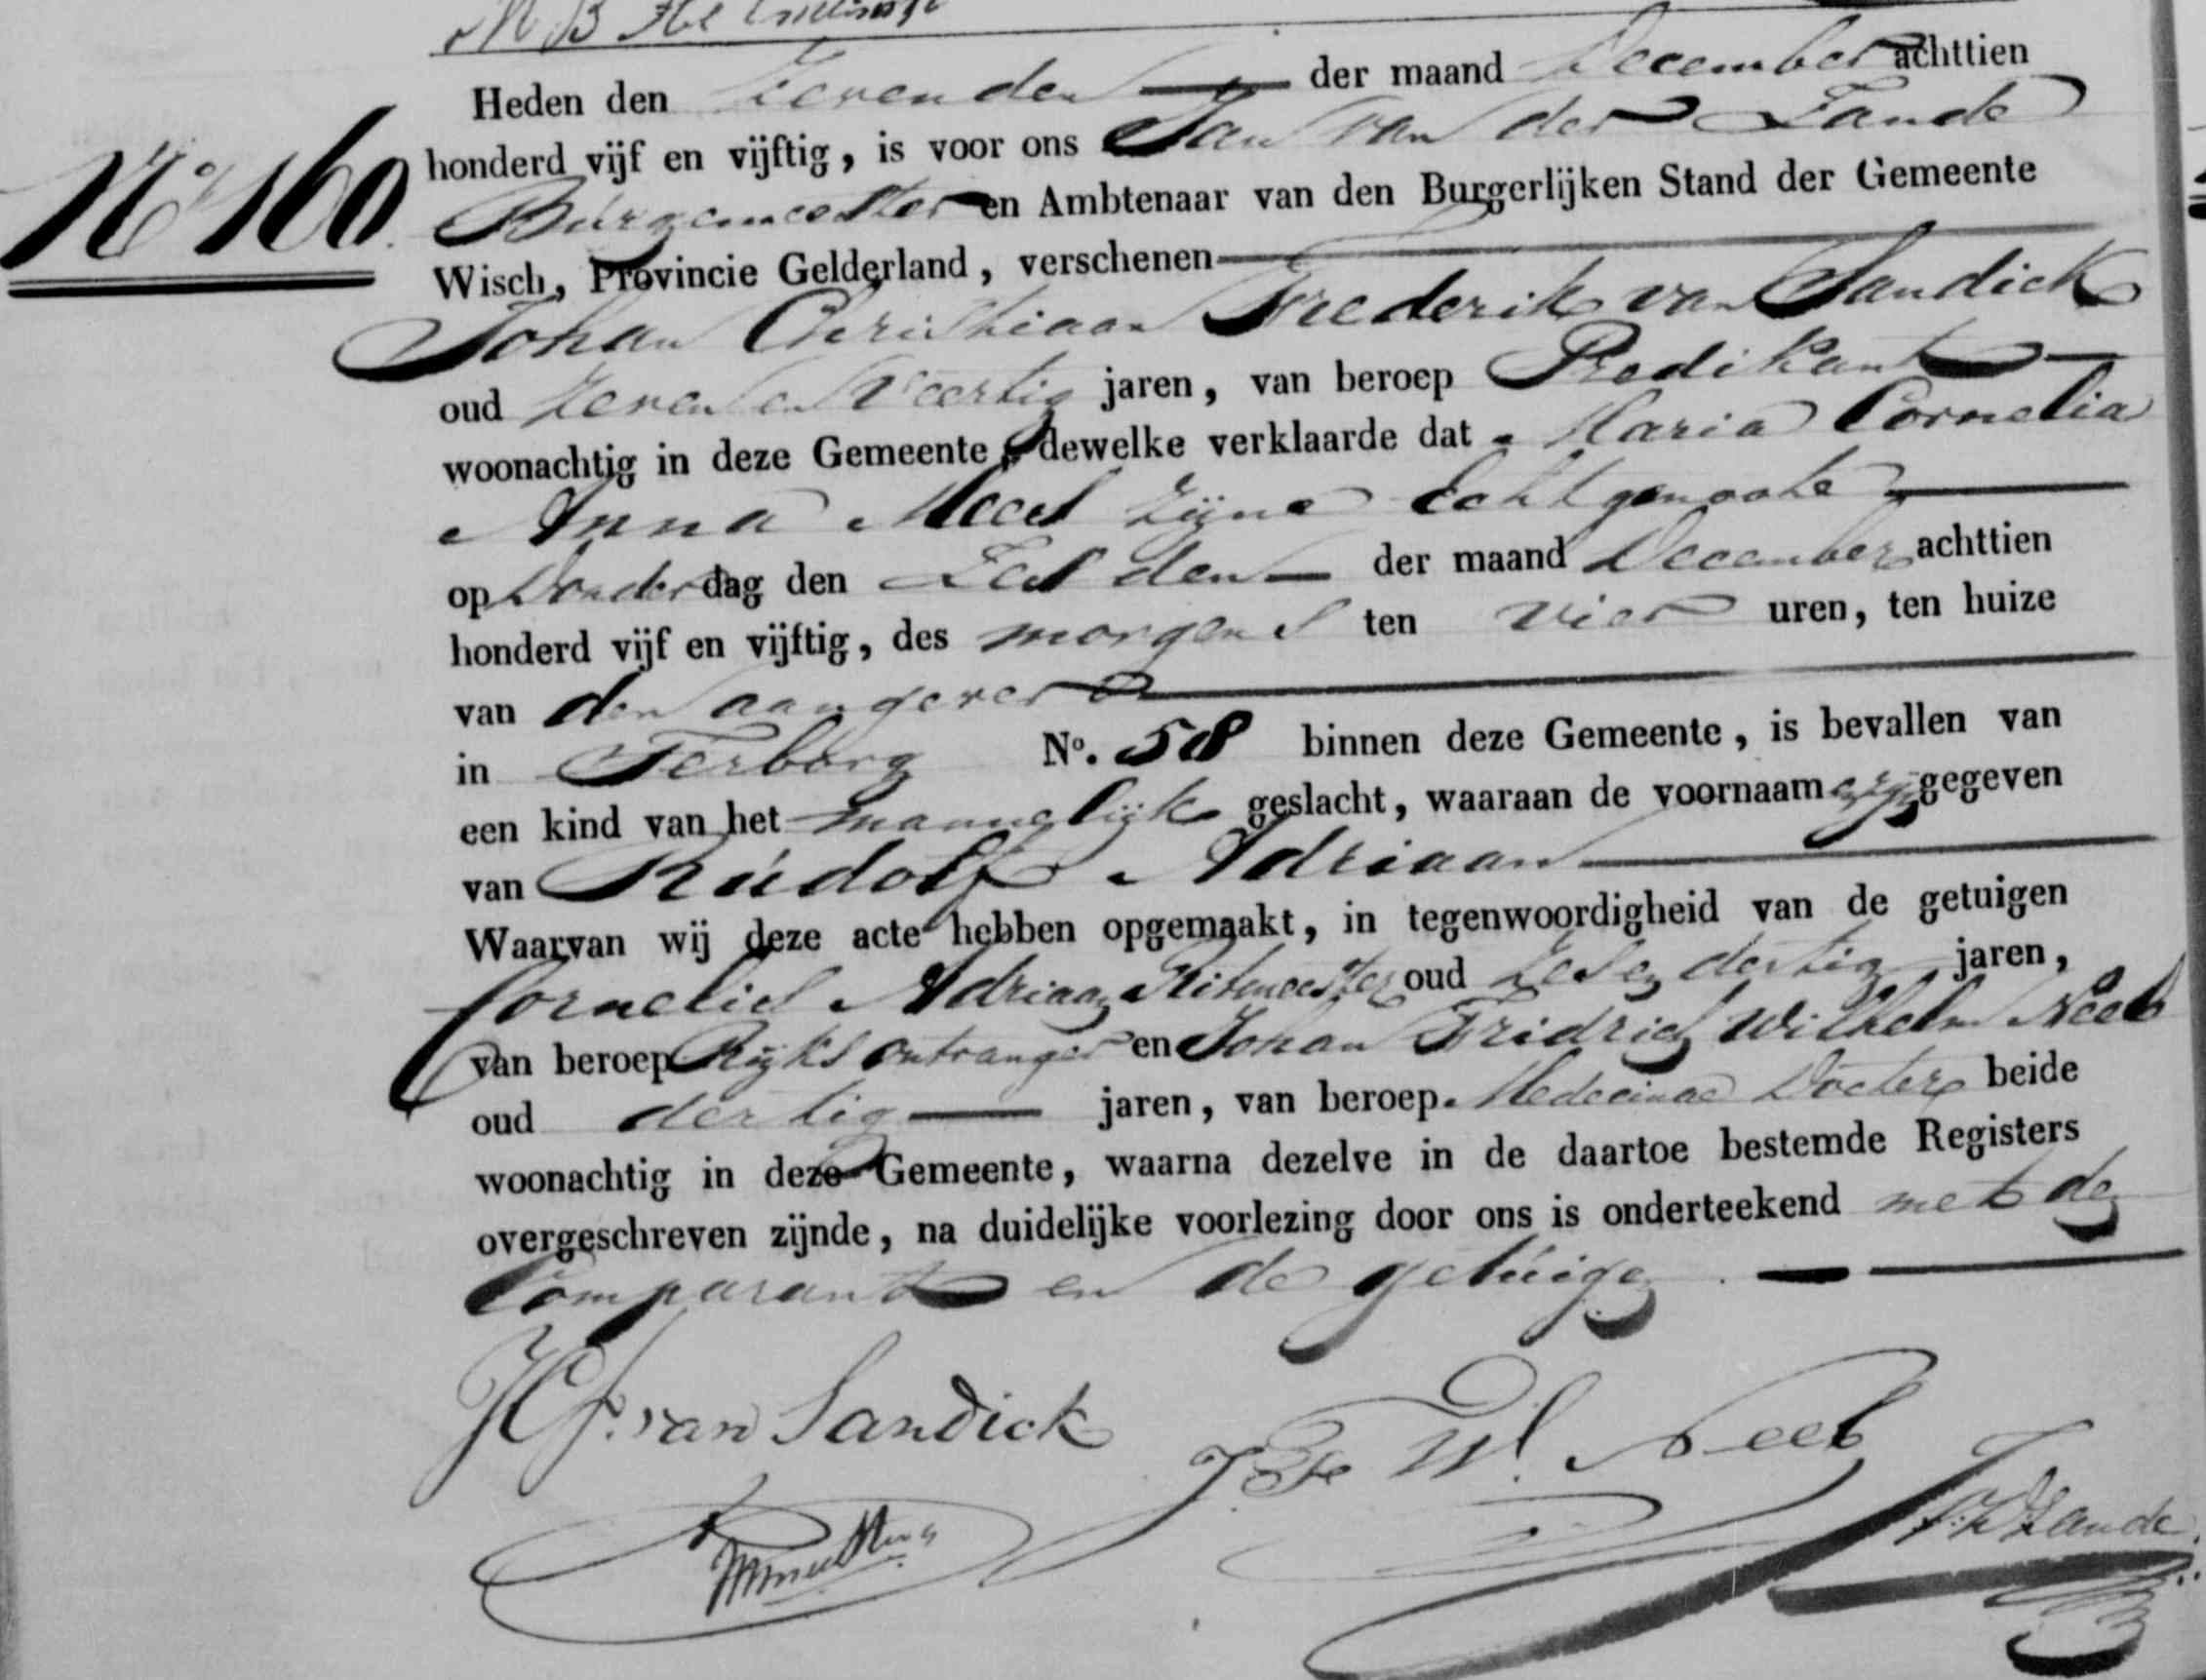 Heden den Zevenden der maand December achttien
No 160
honderd vijf en vijftig, is voor ons Jan van der Zande
Burgemeester en Ambtenaar van den Burgerlijken Stand der Gemeente
Wisch, Provincie Gelderland, verschenen
Johan Christiaan Frederik van Sandick
oud zeven en veertig jaren, van beroep Predikant
woonachtig in deze Gemeente, dewelke verklaarde dat Maria Cornelia
Anna Mees zijne Echtgenoote
op Donderdag den Zesden der maand December achttien
honderd vijf en vijftig, des morgens ten vier uren, ten huize
van den aangever
in Terborg No. 58 binnen deze Gemeente, is bevallen van
een kind van het mannelijke geslacht, waaraan de voornaamen zijn gegeven
van Rúdolf Adriaan
Waarvan wij deze acte hebben opgemaakt, in tegenwoordigheid van de getuigen
Cornelis Adriaan Ritmeester oud zes en dertig jaren,
van beroep Rijks ontvanger en Johan Fridrich Wilhelm Neeb
oud dertig jaren, van beroep Medecinae Docter beide
woonachtig in deze Gemeente, waarna dezelve in de daartoe bestemde Registers
overgeschreven zijnde, na duidelijke voorlezing door ons is onderteekend met den
Comparant en de getúigen
JCF. van Sandick
J. Fr. W. Neeb
J.v.d.Zande